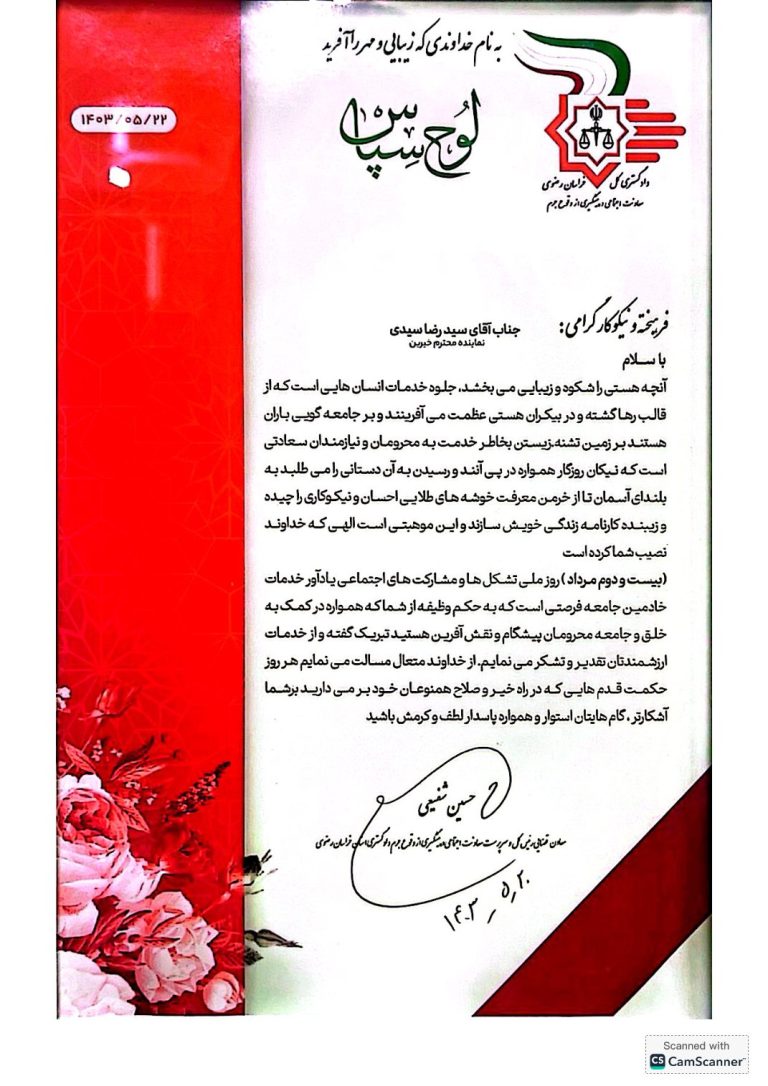 به نام خداوندی که زیبایی و مهر را آفرید
۱۴۰۳/۰۵/۲۲
لوح سپاس
دادگستری کل خراسان رضوی
معاونت اجتماعی و پیشگیری از وقوع جرم
فرهیخته و نیکوکار گرامی:
جناب آقای سید رضا سیدی
نماینده محترم خیرین
با سلام
آنچه هستی را شکوه و زیبایی می بخشد، جلوه خدمات انسان هایی است که از
قالب رها گشته و در بیکران هستی عظمت می آفرینند و بر جامعه گویی باران
هستند بر زمین تشنه.زیستن بخاطر خدمت به محرومان و نیازمندان سعادتی
است که نیکان روزگار همواره در پی آنند و رسیدن به آن دستانی را می طلبد به
بلندای آسمان تا از خرمن معرفت خوشه های طلایی احسان و نیکوکاری را چیده
و زیبنده کارنامه زندگی خویش سازند و این موهبتی است الهی که خداوند
نصیب شما کرده است
(بیست و دوم مرداد) روز ملی تشکل ها و مشارکت های اجتماعی یادآور خدمات
خادمین جامعه فرصتی است که به حکم وظیفه از شما که همواره در کمک به
خلق و جامعه محرومان پیشگام و نقش آفرین هستید تبریک گفته و از خدمات
ارزشمندتان تقدیر و تشکر می نمایم. از خداوند متعال مسالت می نمایم هر روز
حکمت قدم هایی که در راه خیر و صلاح همنوعان خود بر می دارید برشما
آشکارتر، گام هایتان استوار و همواره پاسدار لطف و کرمش باشید
حسین شفیعی
معاون قضایی رئیس کل و سرپرست معاونت اجتماعی و پیشگیری از وقوع جرم دادگستری استان خراسان رضوی
۱۴۰۳_۵_۲۰
Scanned with
CS CamScanner